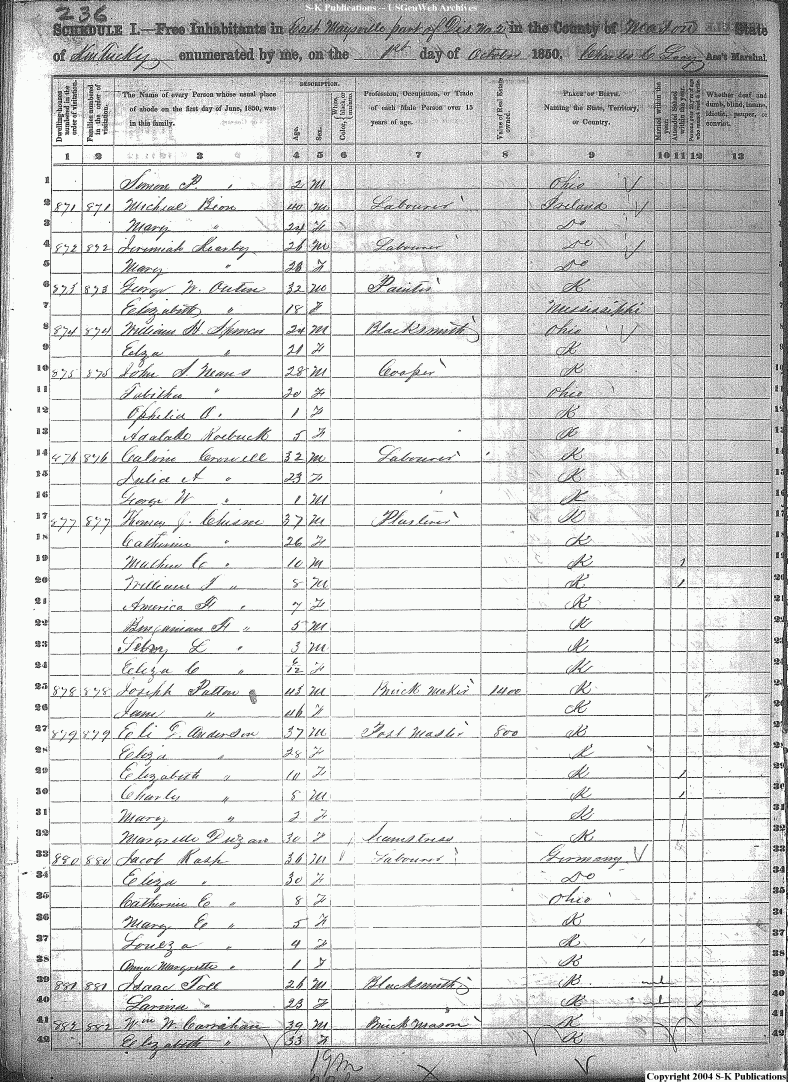 S-K Publications -- USGenWeb Archives
236
SCHEDULE I.—Free Inhabitants in East Maysville part of Dis No 2 in the County of Mason State
of Kentucky enumerated by me, on the 1st day of October 1850. Charles C. Ass't Marshal.
DESCRIPTION.
Dwelling-houses numbered in the order of visitation.
Families numbered in the order of visitation.
The Name of every Person whose usual place of abode on the first day of June, 1850, was in this family.
Age.
Sex.
Color, White, black, or mulatto.
Profession, Occupation, or Trade of each Male Person over 15 years of age.
Value of Real Estate owned.
PLACE OF BIRTH. Naming the State, Territory, or Country.
Married within the year.
Attended School within the year.
Persons over 20 y'rs of age who cannot read & write.
Whether deaf and dumb, blind, insane, idiotic, pauper, or convict.
1 2 3 4 5 6 7 8 9 10 11 12 13
1 Simon P. " 2 M Ohio
2 871 871 Micheal Bion 40 M Labourer Ireland
3 Mary " 24 F Do
4 872 872 Jeremiah 26 M Labourer Do
5 Mary " 23 F Do
6 873 873 George W. Outen 32 M Painter K
7 Elizabeth " 18 F Mississippi
8 874 874 William H. Spencer 24 M Blacksmith Ohio
9 Eliza " 21 F K
10 875 875 John S. Mans 28 M Cooper K
11 Tabitha " 20 F Ohio
12 Ophelia O. " 1 F K
13 Adalade Roebuck 5 F K
14 876 876 Calvin Crowell 32 M Labourer K
15 Julia A " 23 F K
16 George W " 1 M K
17 877 877 Thomas J. Chism 37 M Plasterer K
18 Catharine " 26 F K
19 C " 10 M K 1
20 William J " 8 M K 1
21 America H " 7 F K
22 Benjamian H " 5 M K
23 L " 3 M K
24 Eliza C " 6/12 F K
25 878 878 Joseph Patton 43 M Brick Maker 1400 K
26 Jane " 46 F K
27 879 879 Eli G. Anderson 37 M Post Master 800 K
28 Eliza " 28 F K
29 Elizabeth " 10 F K 1
30 Charly " 8 M K 1
31 Mary " 2 F K
32 Margrette Duzan 30 F Seamstress K
33 880 880 Jacob Rash 36 M Labourer Germany
34 Eliza " 30 F Do
35 Catharine E " 8 F Ohio
36 Mary E " 5 F K
37 Loueza " 4 F K
38 Anna Margrette " 1 F K
39 881 881 Isaac Toll 26 M Blacksmith K
40 Larina " 23 F K
41 882 882 Wm W. Carrahan 39 M Brick Mason K
42 Elizabeth " 33 F K
19m
Copyright 2004 S-K Publications